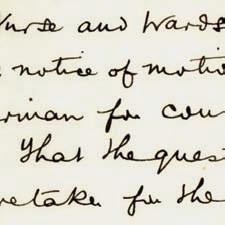 Nurse and Wards
notice of motio
rman for cou
That the quest
retaker for the